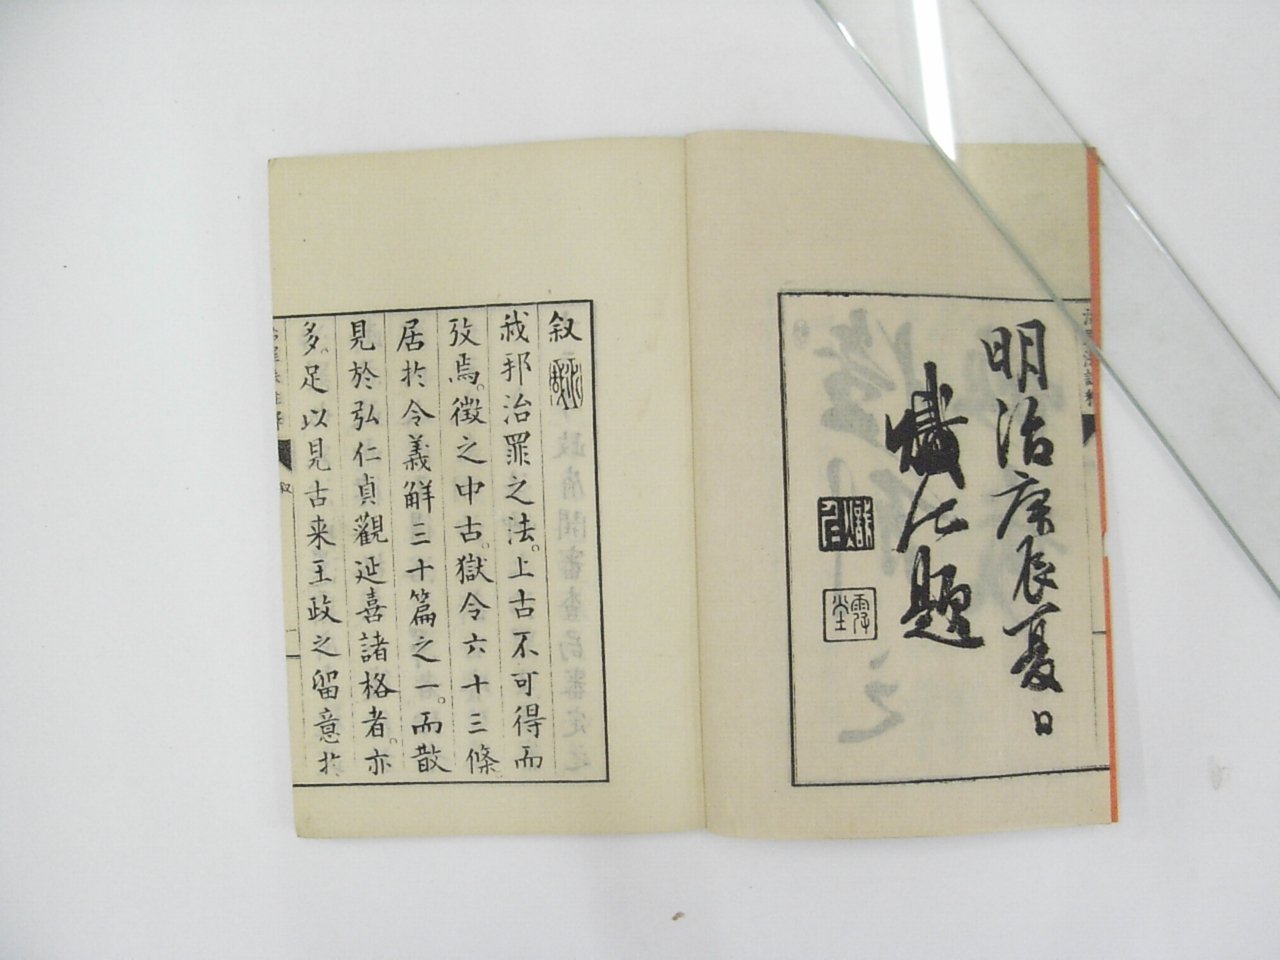 明治庚辰夏日
熾仁題
叙
我邦治罪之法。上古不可得而
攷焉。徴之中古。獄令六十三條
居於令義解三十篇之一。而散
見於弘仁貞觀延喜諸格者。亦
多。足以見古来王政之留意於
叙